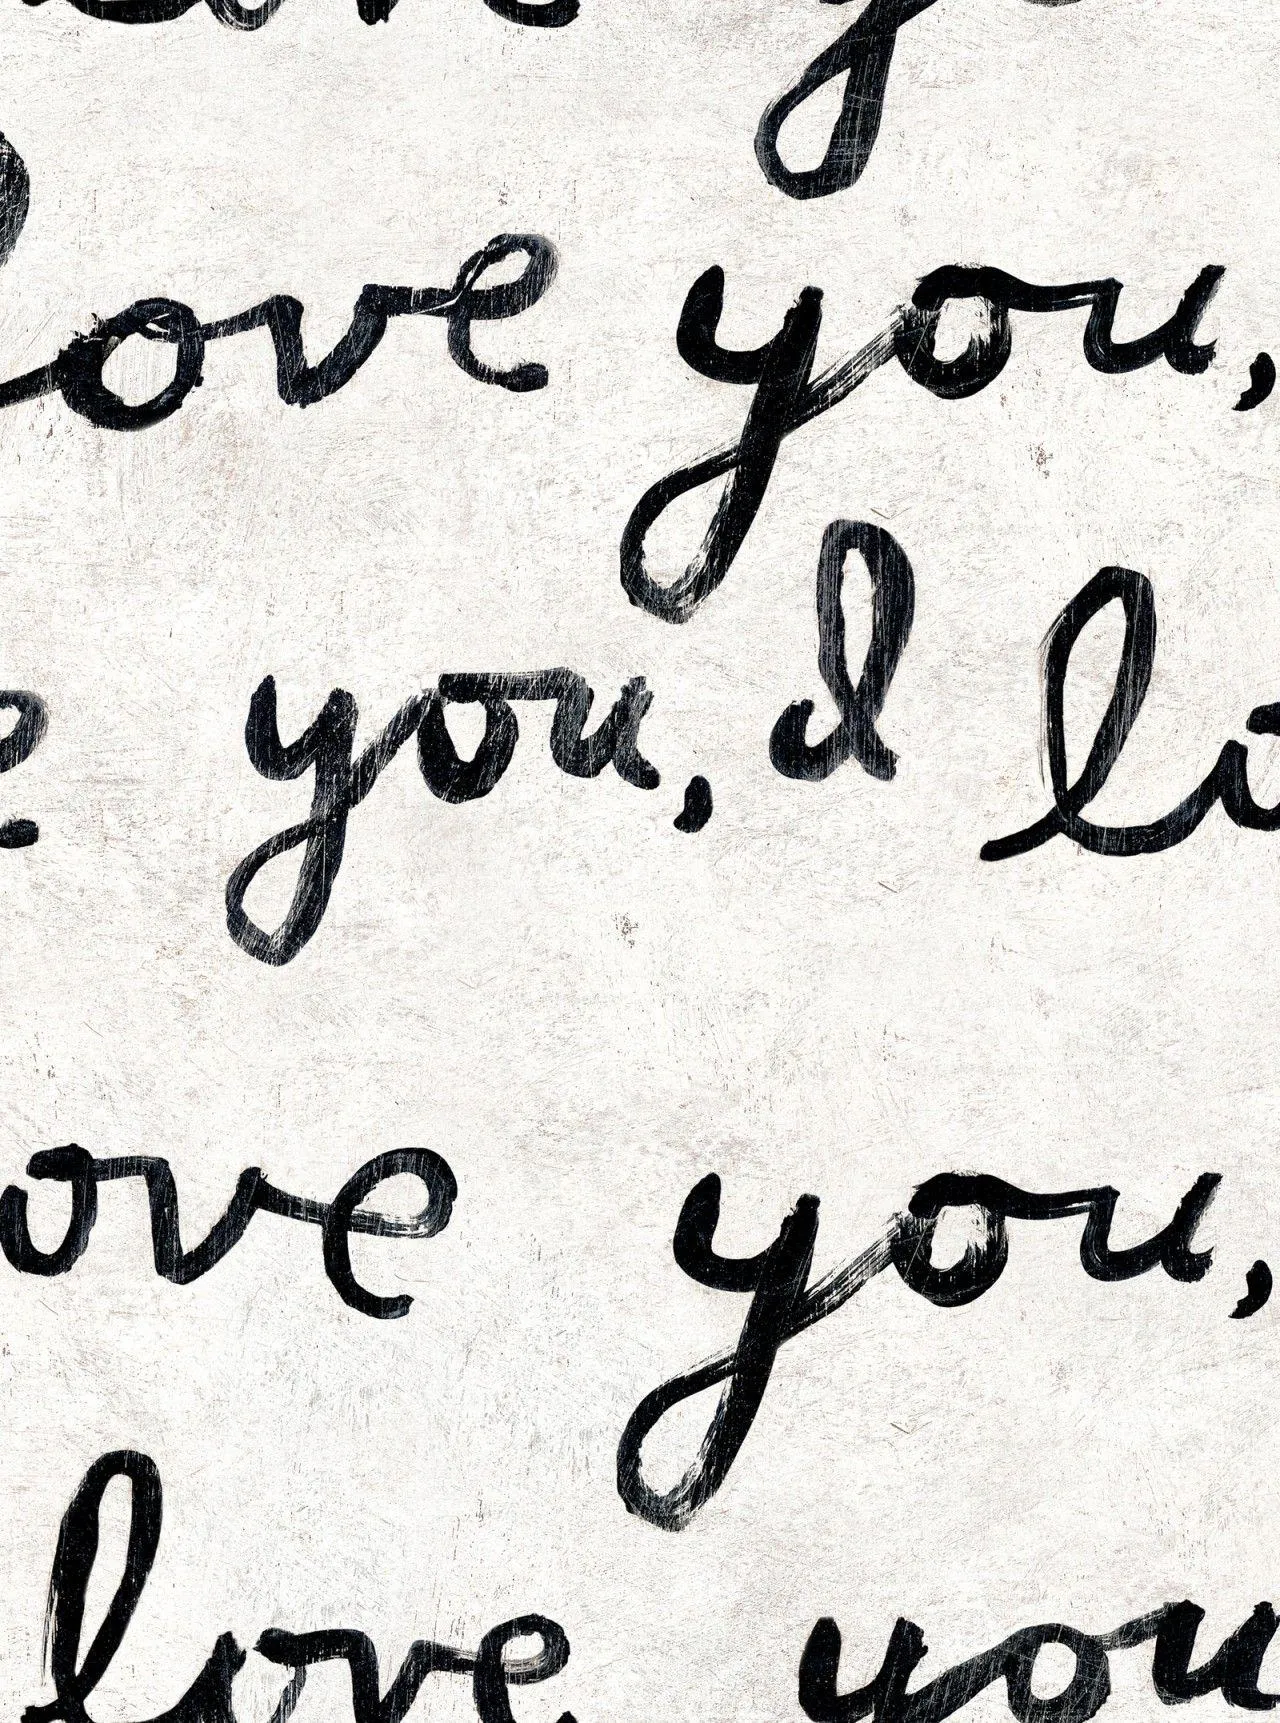 love you
love you,
e you, I lo
ove you,
love you